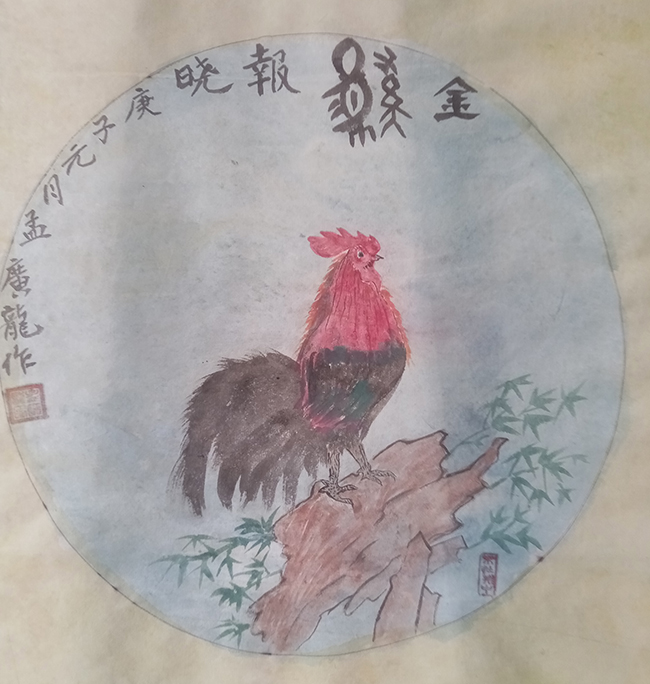 金鷄報晓
庚子元月孟廣龍作